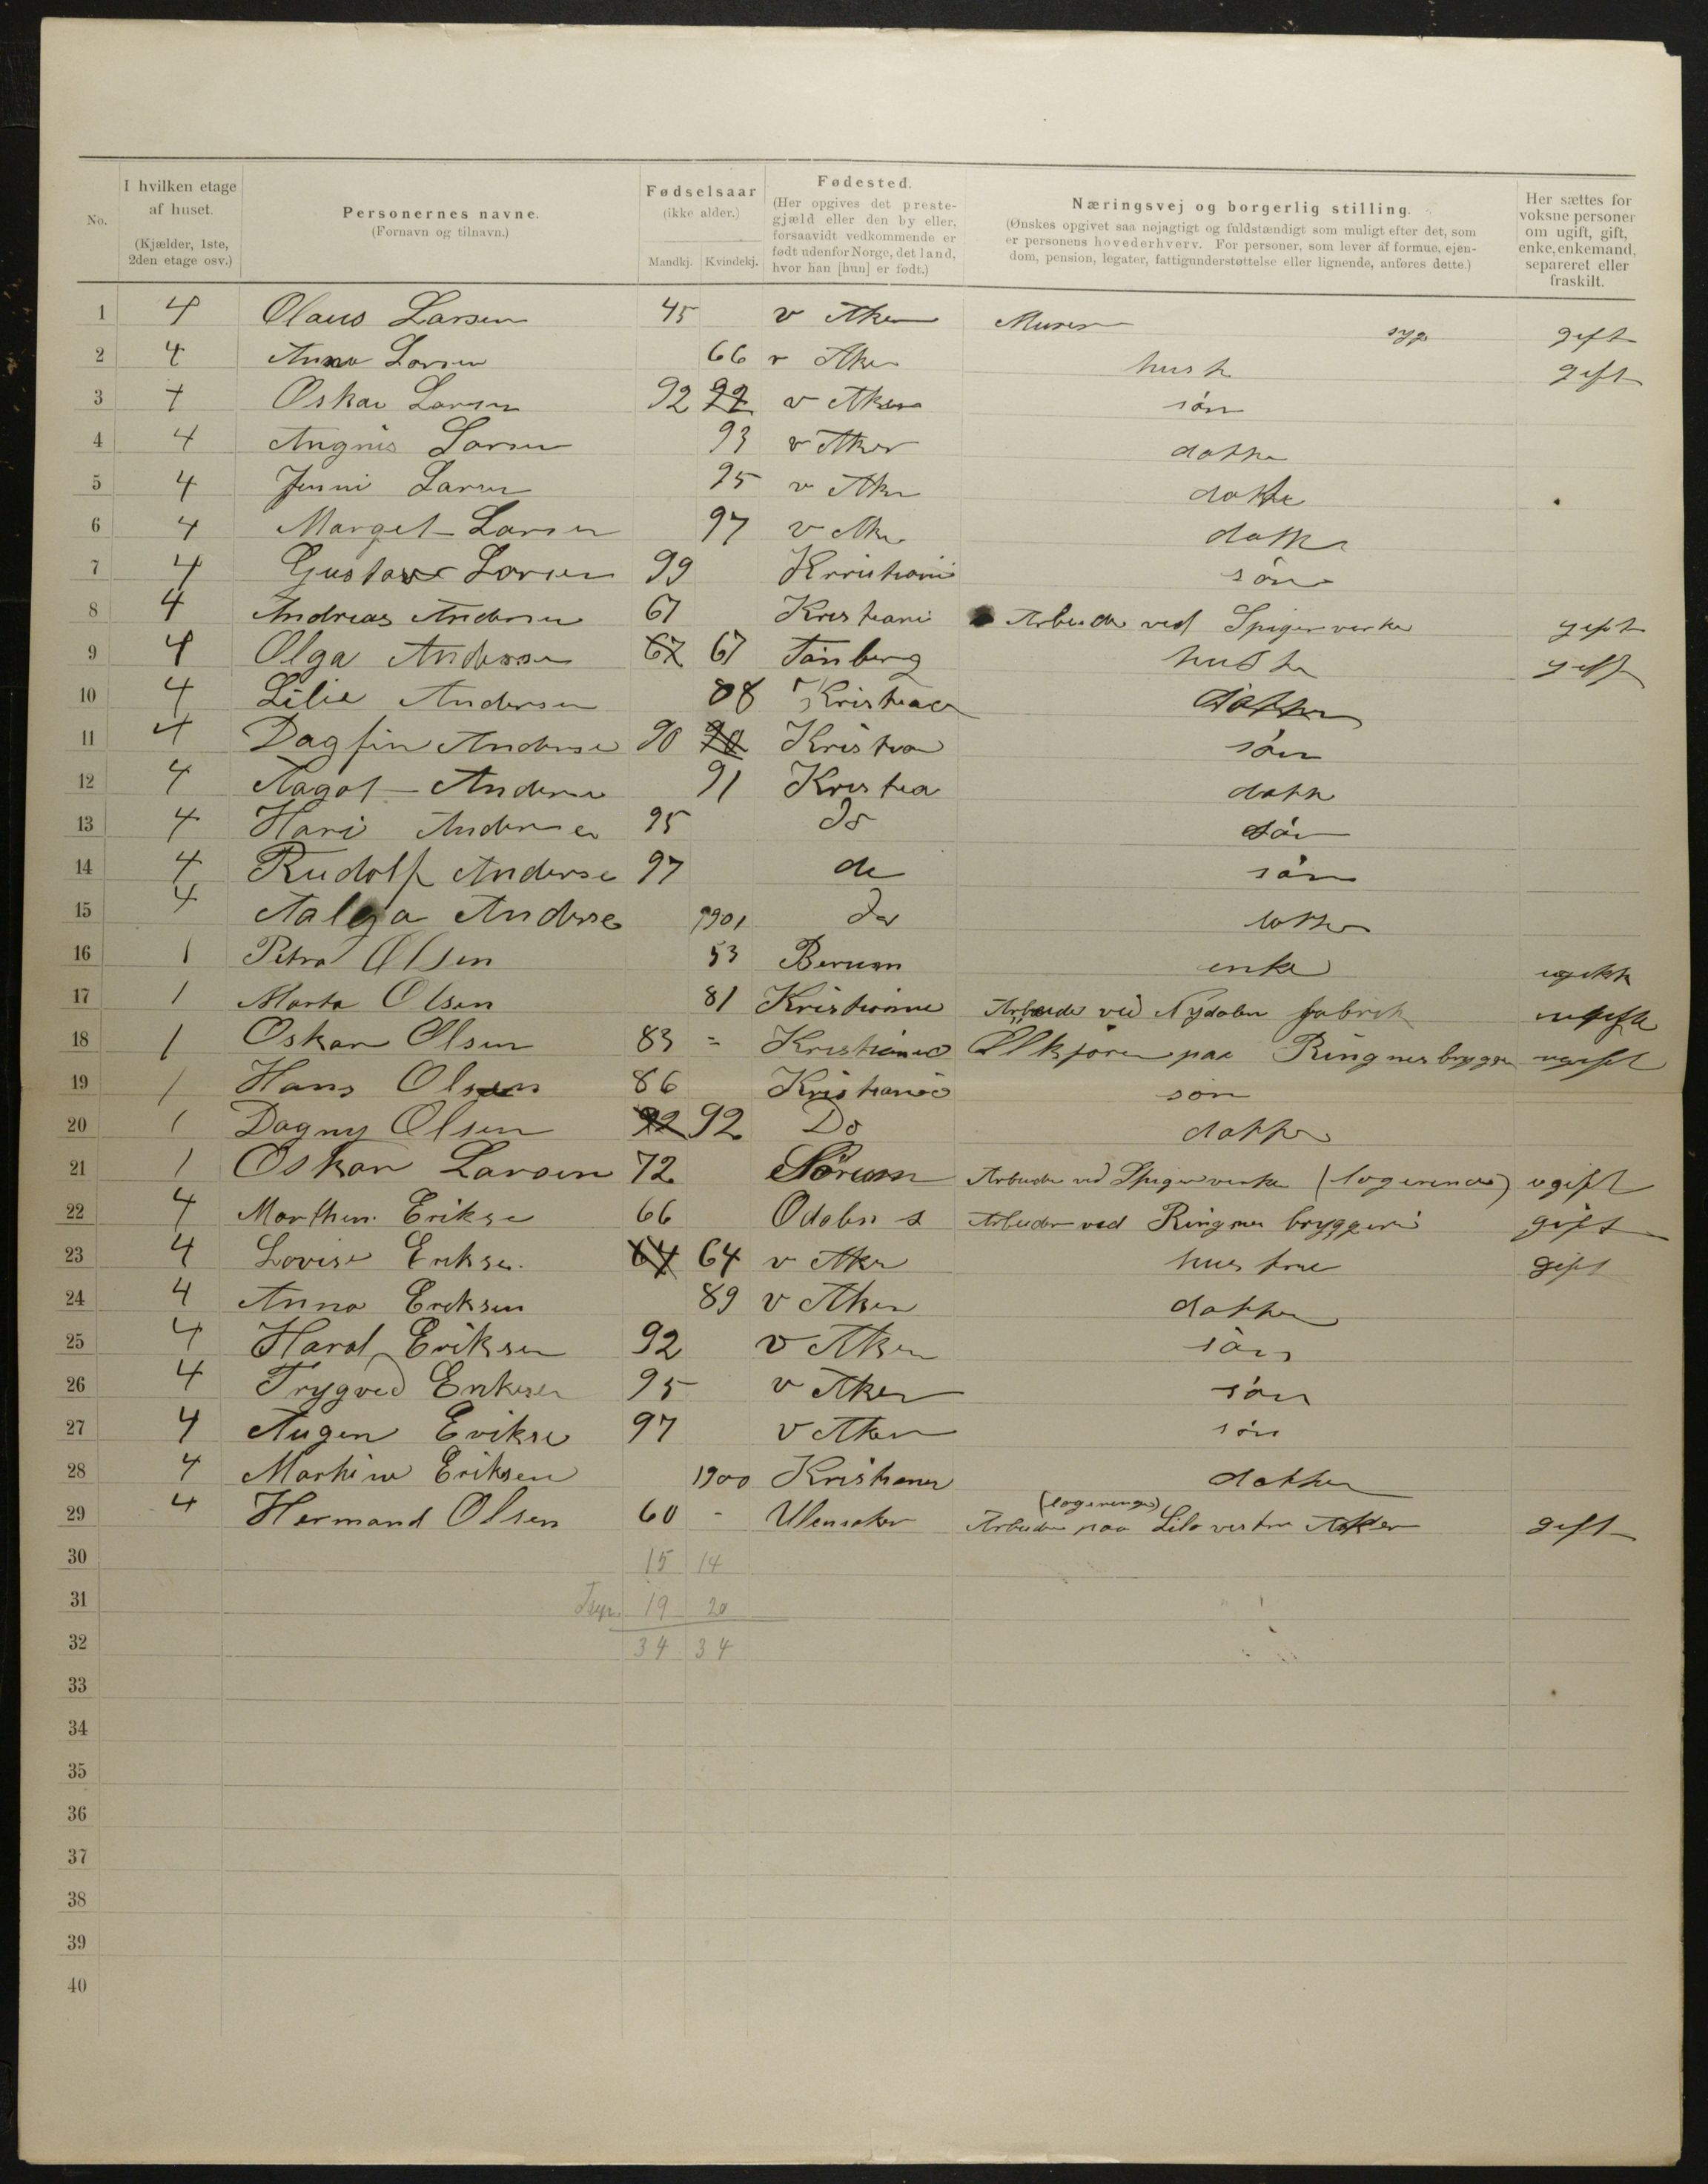 No. | I hvilken etage af huset. (Kjælder, 1ste, 2den etage osv.) | Personernes navne. (Fornavn og tilnavn.) | Fødselsaar (ikke alder.) Mandkj. Kvindekj. | Fødested. (Her opgives det prestegjæld eller den by eller, forsaavidt vedkommende er født udenfor Norge, det land, hvor han [hun] er født.) | Næringsvej og borgerlig stilling. (Ønskes opgivet saa nøjagtigt og fuldstændigt som muligt efter det, som er personens hovederhverv. For personer, som lever af formue, ejendom, pension, legater, fattigunderstøttelse eller lignende, anføres dette.) | Her sættes for voksne personer om ugift, gift, enke, enkemand, separeret eller fraskilt.
1 4 Olaus Larsen 45 v Aker Murer syg gift
2 4 Anna Larsen 66 v Aker hustr gift
3 4 Oskar Larsen 92 92 v Aker søn
4 4 Angnis Larsen 93 v Aker datter
5 4 Jenni Larsen 95 v Aker datter
6 4 Marget Larsen 97 v Aker datter
7 4 Gustav Larsen 99 Kristiani søn
8 4 Andreas Andersen 67 Kristiani Arbeider ved Spigerverke gift
9 4 Olga Andersen 67 67 Tønberg hustr gift
10 4 Lilie Andersen 88 Kristiae datter
11 4 Dagfin Anderse 90 90 Kristia søn
12 4 Aagot Anderse 91 Kristia datter
13 4 Hari Andersen 95 do søn
14 4 Rudolf Anderse 97 do søn
15 4 Aalga Anderse 1901 do datter
16 1 Petra Olsen 53 Berum enke
17 1 Marta Olsen 81 Kristiania Arbeider ved Nydalen fabrik ugift
18 1 Oskar Olsen 83 = Kristiania Ølkjører paa Ringnes brygge ugift
19 1 Hans Olsen 86 Kristiania søn
20 1 Dagny Olsen 92 92 Do datter
21 1 Oskar Larsen 72 Sørum Arbeider ved Spigerverke (logerende) ugift
22 4 Marthin Erikse 66 Odalen s Arbeider ved Ringnes bryggeri gift
23 4 Lovise Erikse 64 64 v Aker hustrue gift
24 4 Anna Eriksen 89 v Aker datter
25 4 Haral Eriksen 92 v Aker søn
26 4 Trygve Eriksen 95 v Aker søn
27 4 Augen Erikse 97 v Aker søn
28 4 Martine Eriksen 1900 Kristiania datter
29 4 Hermand Olsen 60 - Ulensaker (logerenge) Arbeider paa Lilo vestre Aker gift
30 15 14
31 19 20
32 34 34
33
34
35
36
37
38
39
40